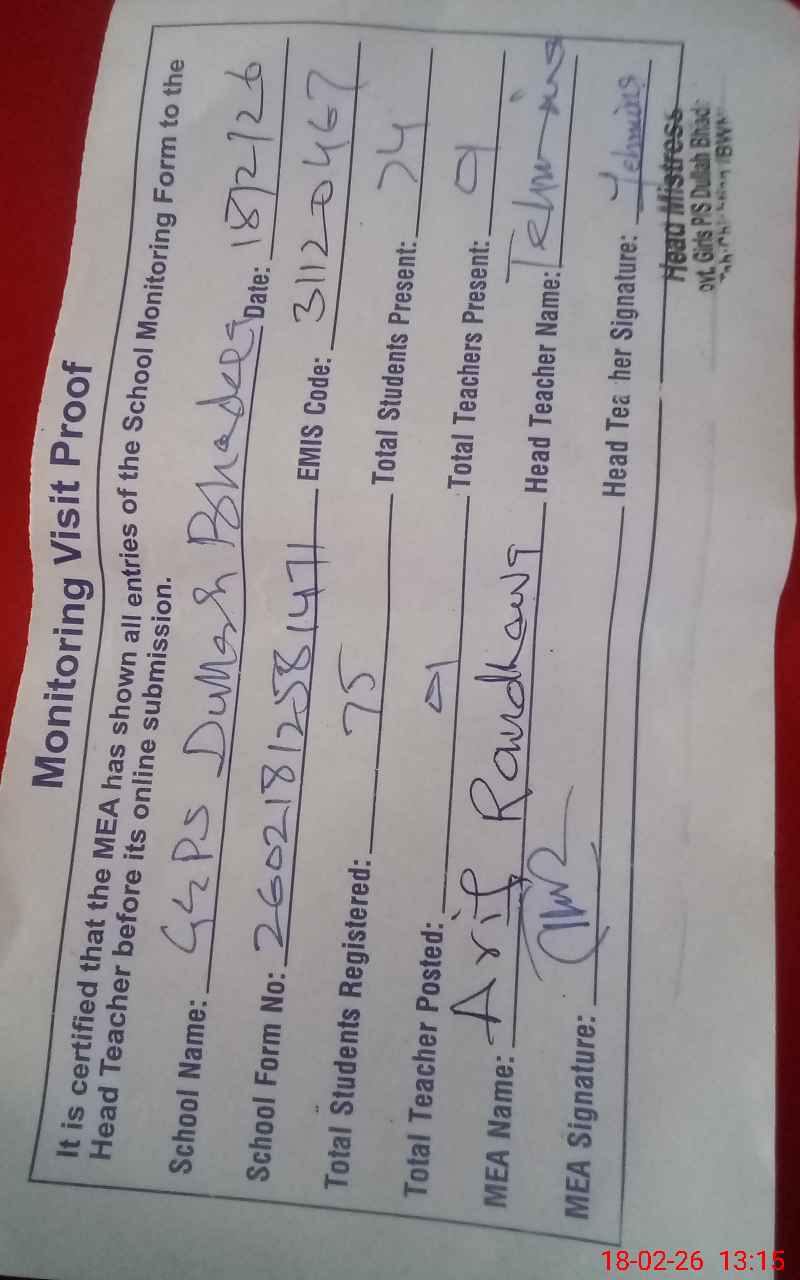 Monitoring Visit Proof
It is certified that the MEA has shown all entries of the School Monitoring Form to the
Head Teacher before its online submission.
School Name: GGPS Dullah Bhadera Date: 18/2/26
School Form No: 26021812581471 EMIS Code: 31120467
Total Students Registered: 75 Total Students Present: 74
Total Teacher Posted: 9 Total Teachers Present: 9
MEA Name: Arif Randhawa Head Teacher Name: Tehmina
MEA Signature: Head Teacher Signature: Tehmina
Head Mistress
ovt. Girls P/S Dullah Bhad
18-02-26 13:15